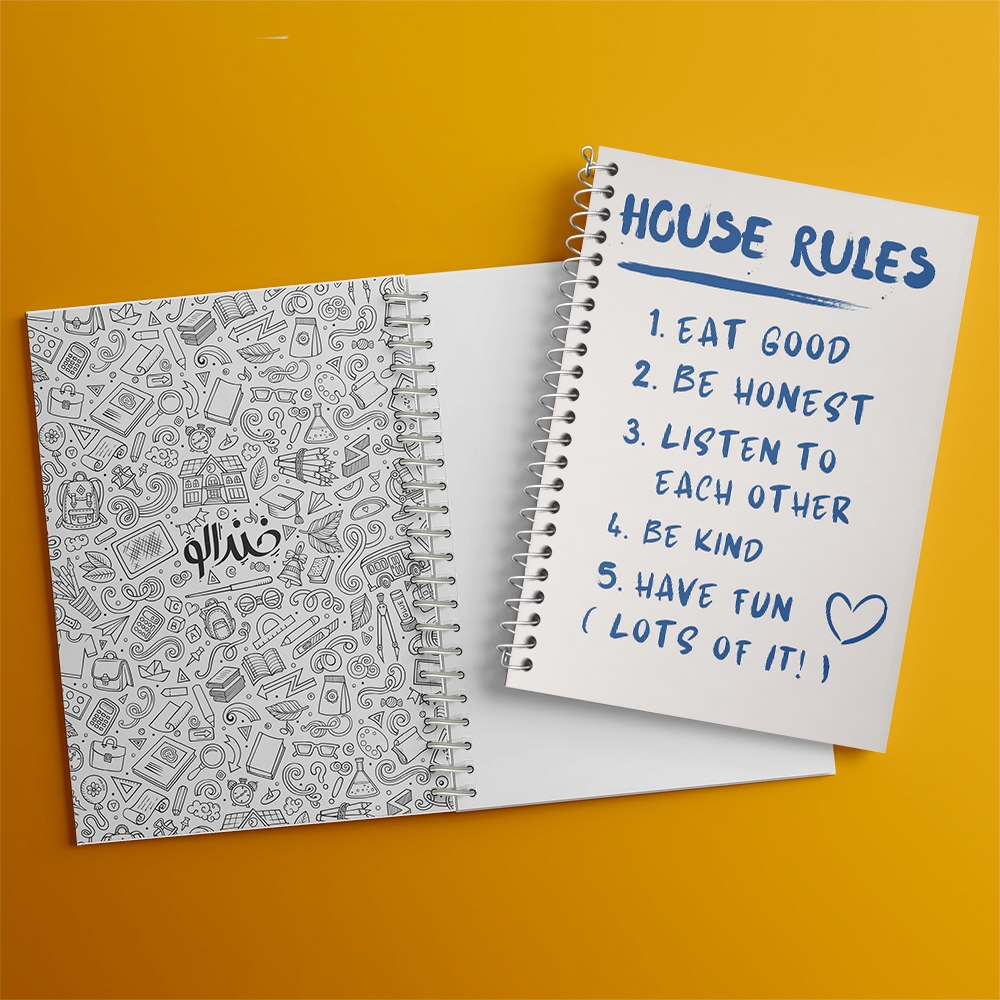 خندالو
HOUSE RULES
1. EAT GOOD
2. BE HONEST
3. LISTEN TO
EACH OTHER
4. BE KIND
5. HAVE FUN
( LOTS OF IT! )